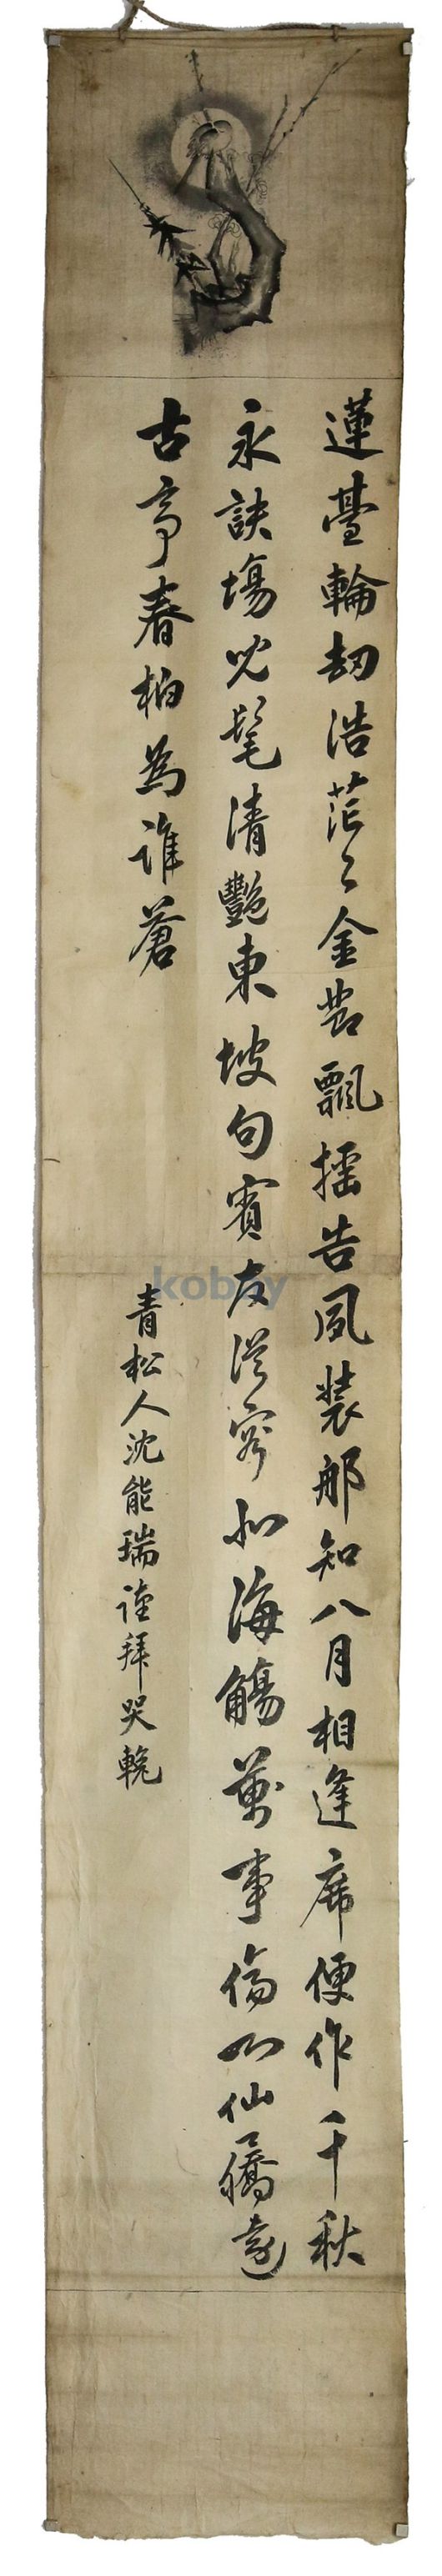 蓮臺輪劫浩茫〻金飄搖告夙装那知八月相逢席便作千秋
永訣場髦清艷東坡句賓友從容北海觴萬事傷心仙遠
古亭春柏爲誰蒼
青松人沈能瑞謹拜哭輓
kobay